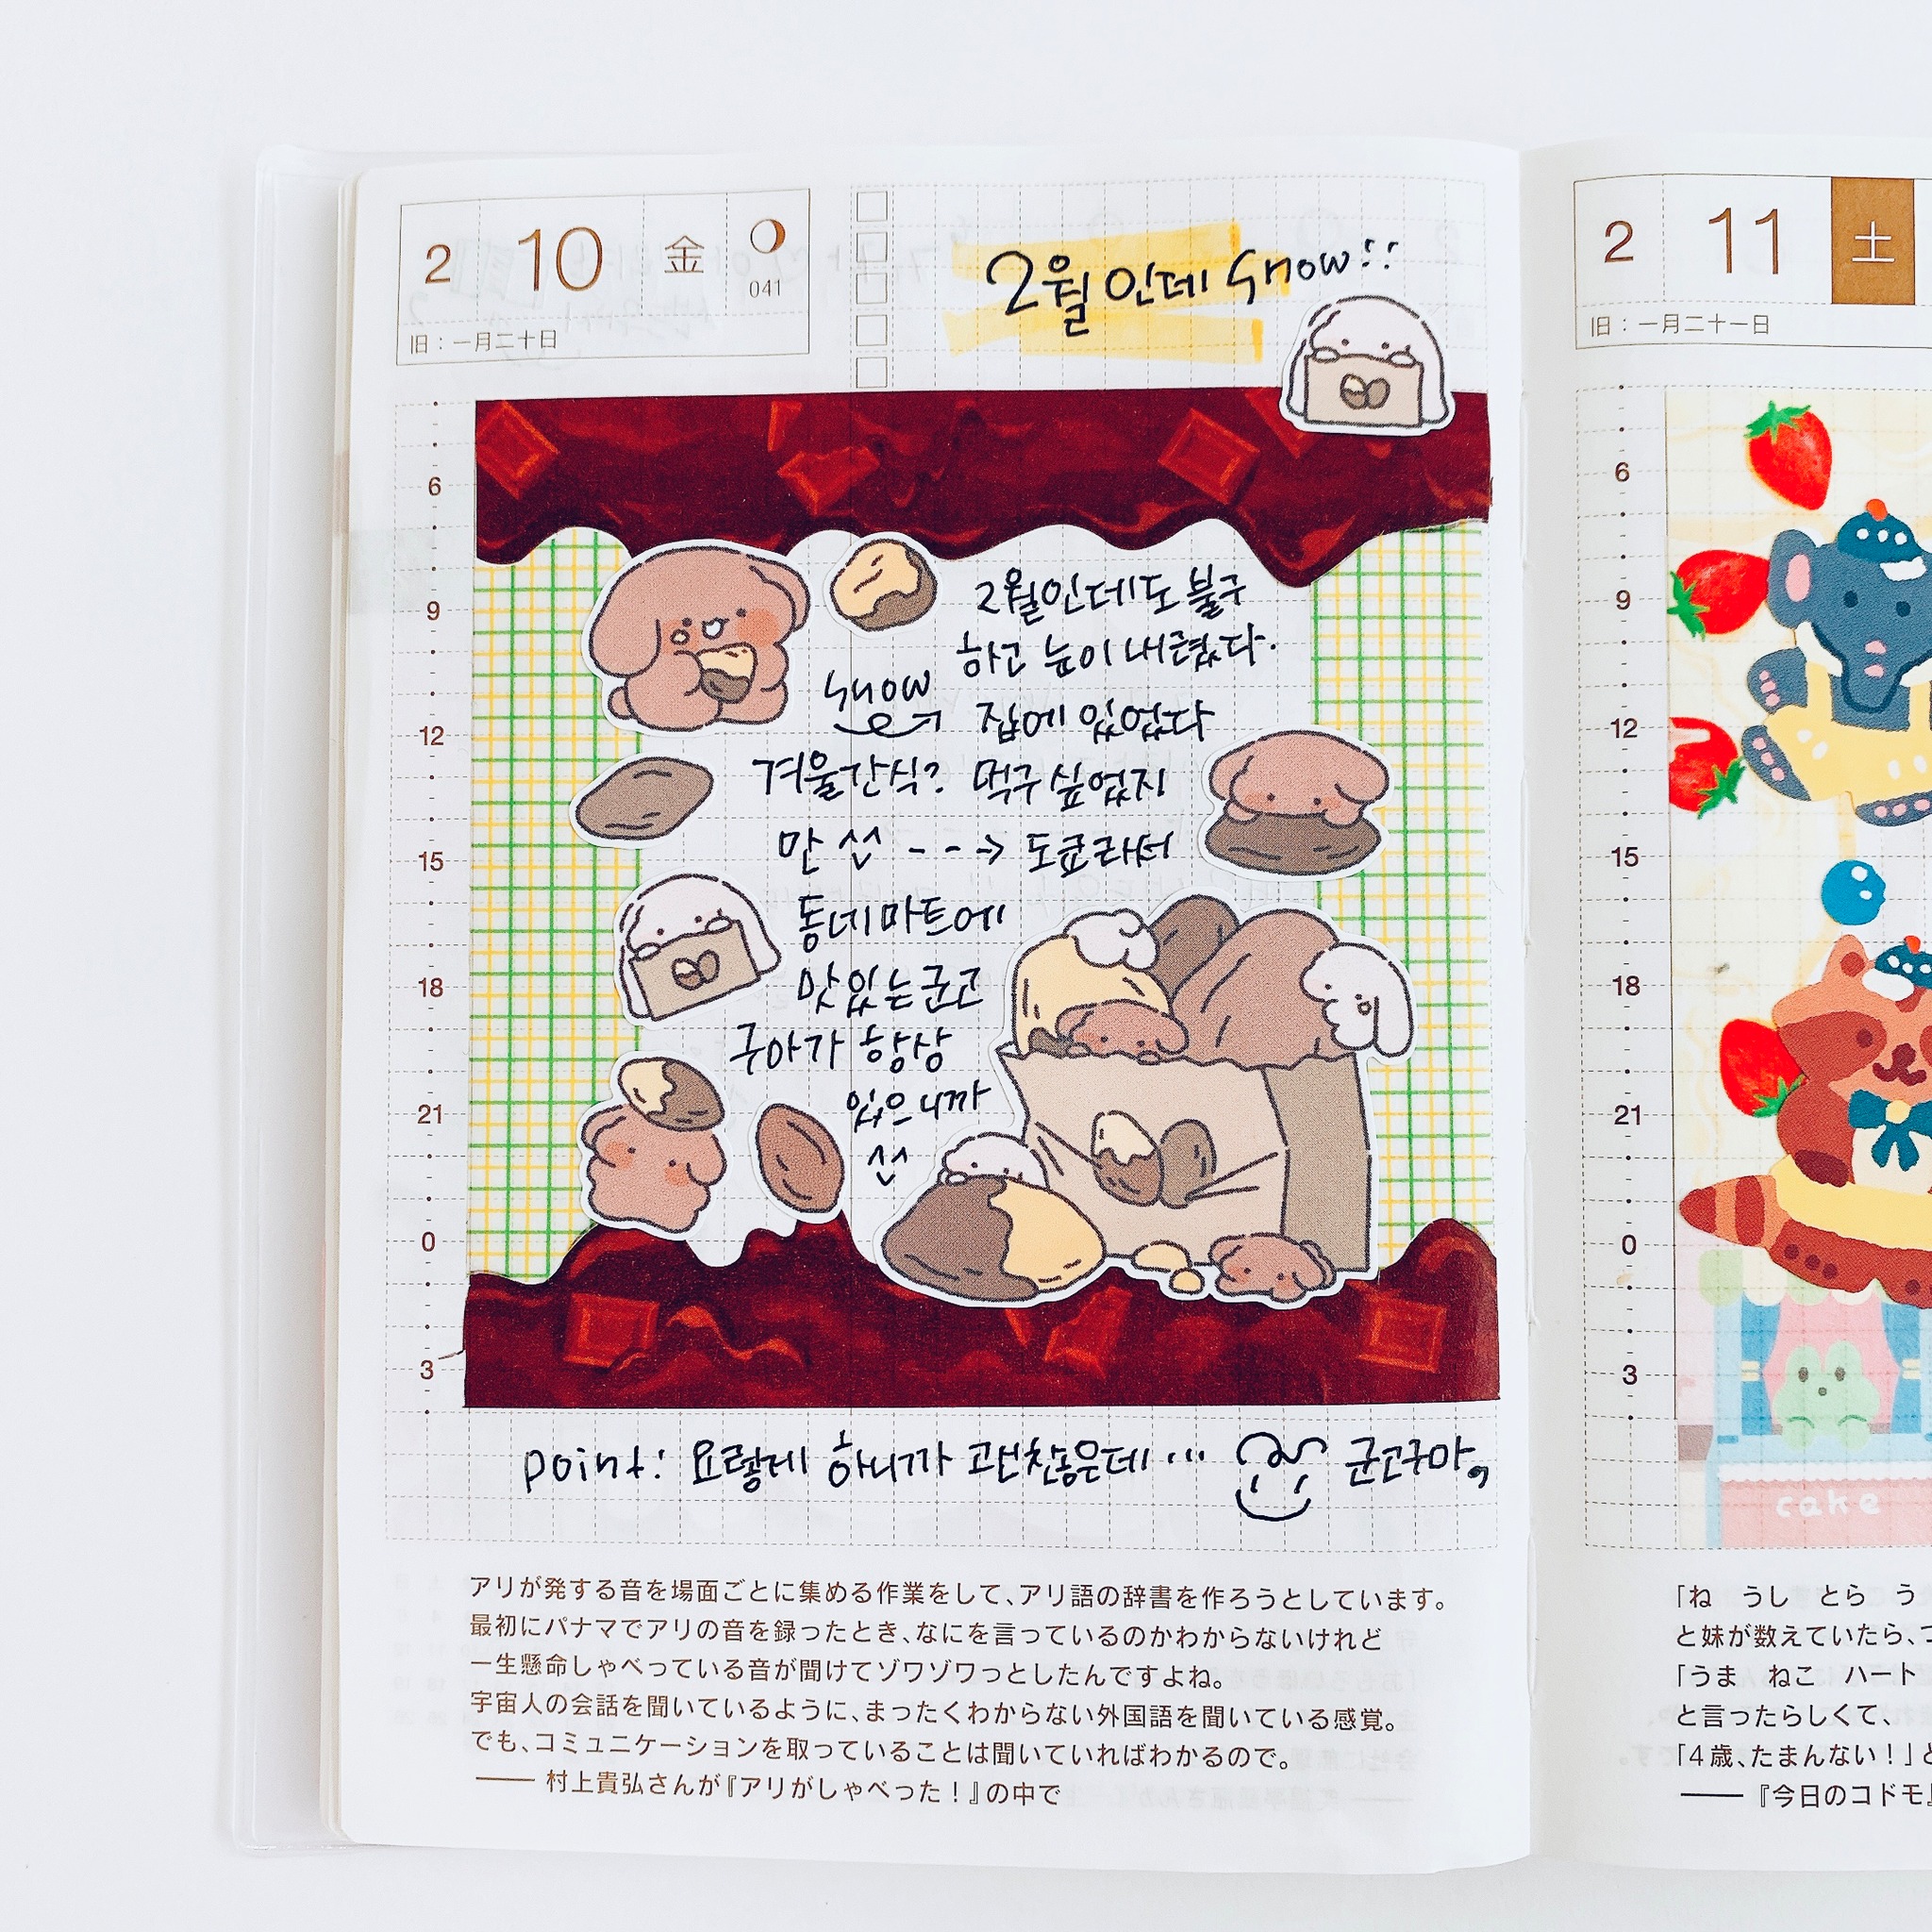 2 10 金
041
旧：一月二十日
2월인데 snow!!
6
9
12
15
18
21
0
3
2월인데도 불구
하고 눈이 내렸다.
snow
집에 있었다
겨울간식? 먹구싶었지
만 ^^ ---→ 도쿄라서
동네마트에
맛있는군고
구마가 항상
있으니까
^^
point: 요렇게 하니까 괜찮은데... 군고구마,
アリが発する音を場面ごとに集める作業をして、アリ語の辞書を作ろうとしています。
最初にパナマでアリの音を録ったとき、なにを言っているのかわからないけれど
一生懸命しゃべっている音が聞けてゾワゾワっとしたんですよね。
宇宙人の会話を聞いているように、まったくわからない外国語を聞いている感覚。
でも、コミュニケーションを取っていることは聞いていればわかるので。
── 村上貴弘さんが『アリがしゃべった！』の中で
2 11 土
旧：一月二十一日
6
9
12
15
18
21
0
3
cake
「ね　うし　とら　う
と妹が数えていたら、つ
「うま　ねこ　ハート
と言ったらしくて、
「4歳、たまんない！」と
── 『今日のコドモ』